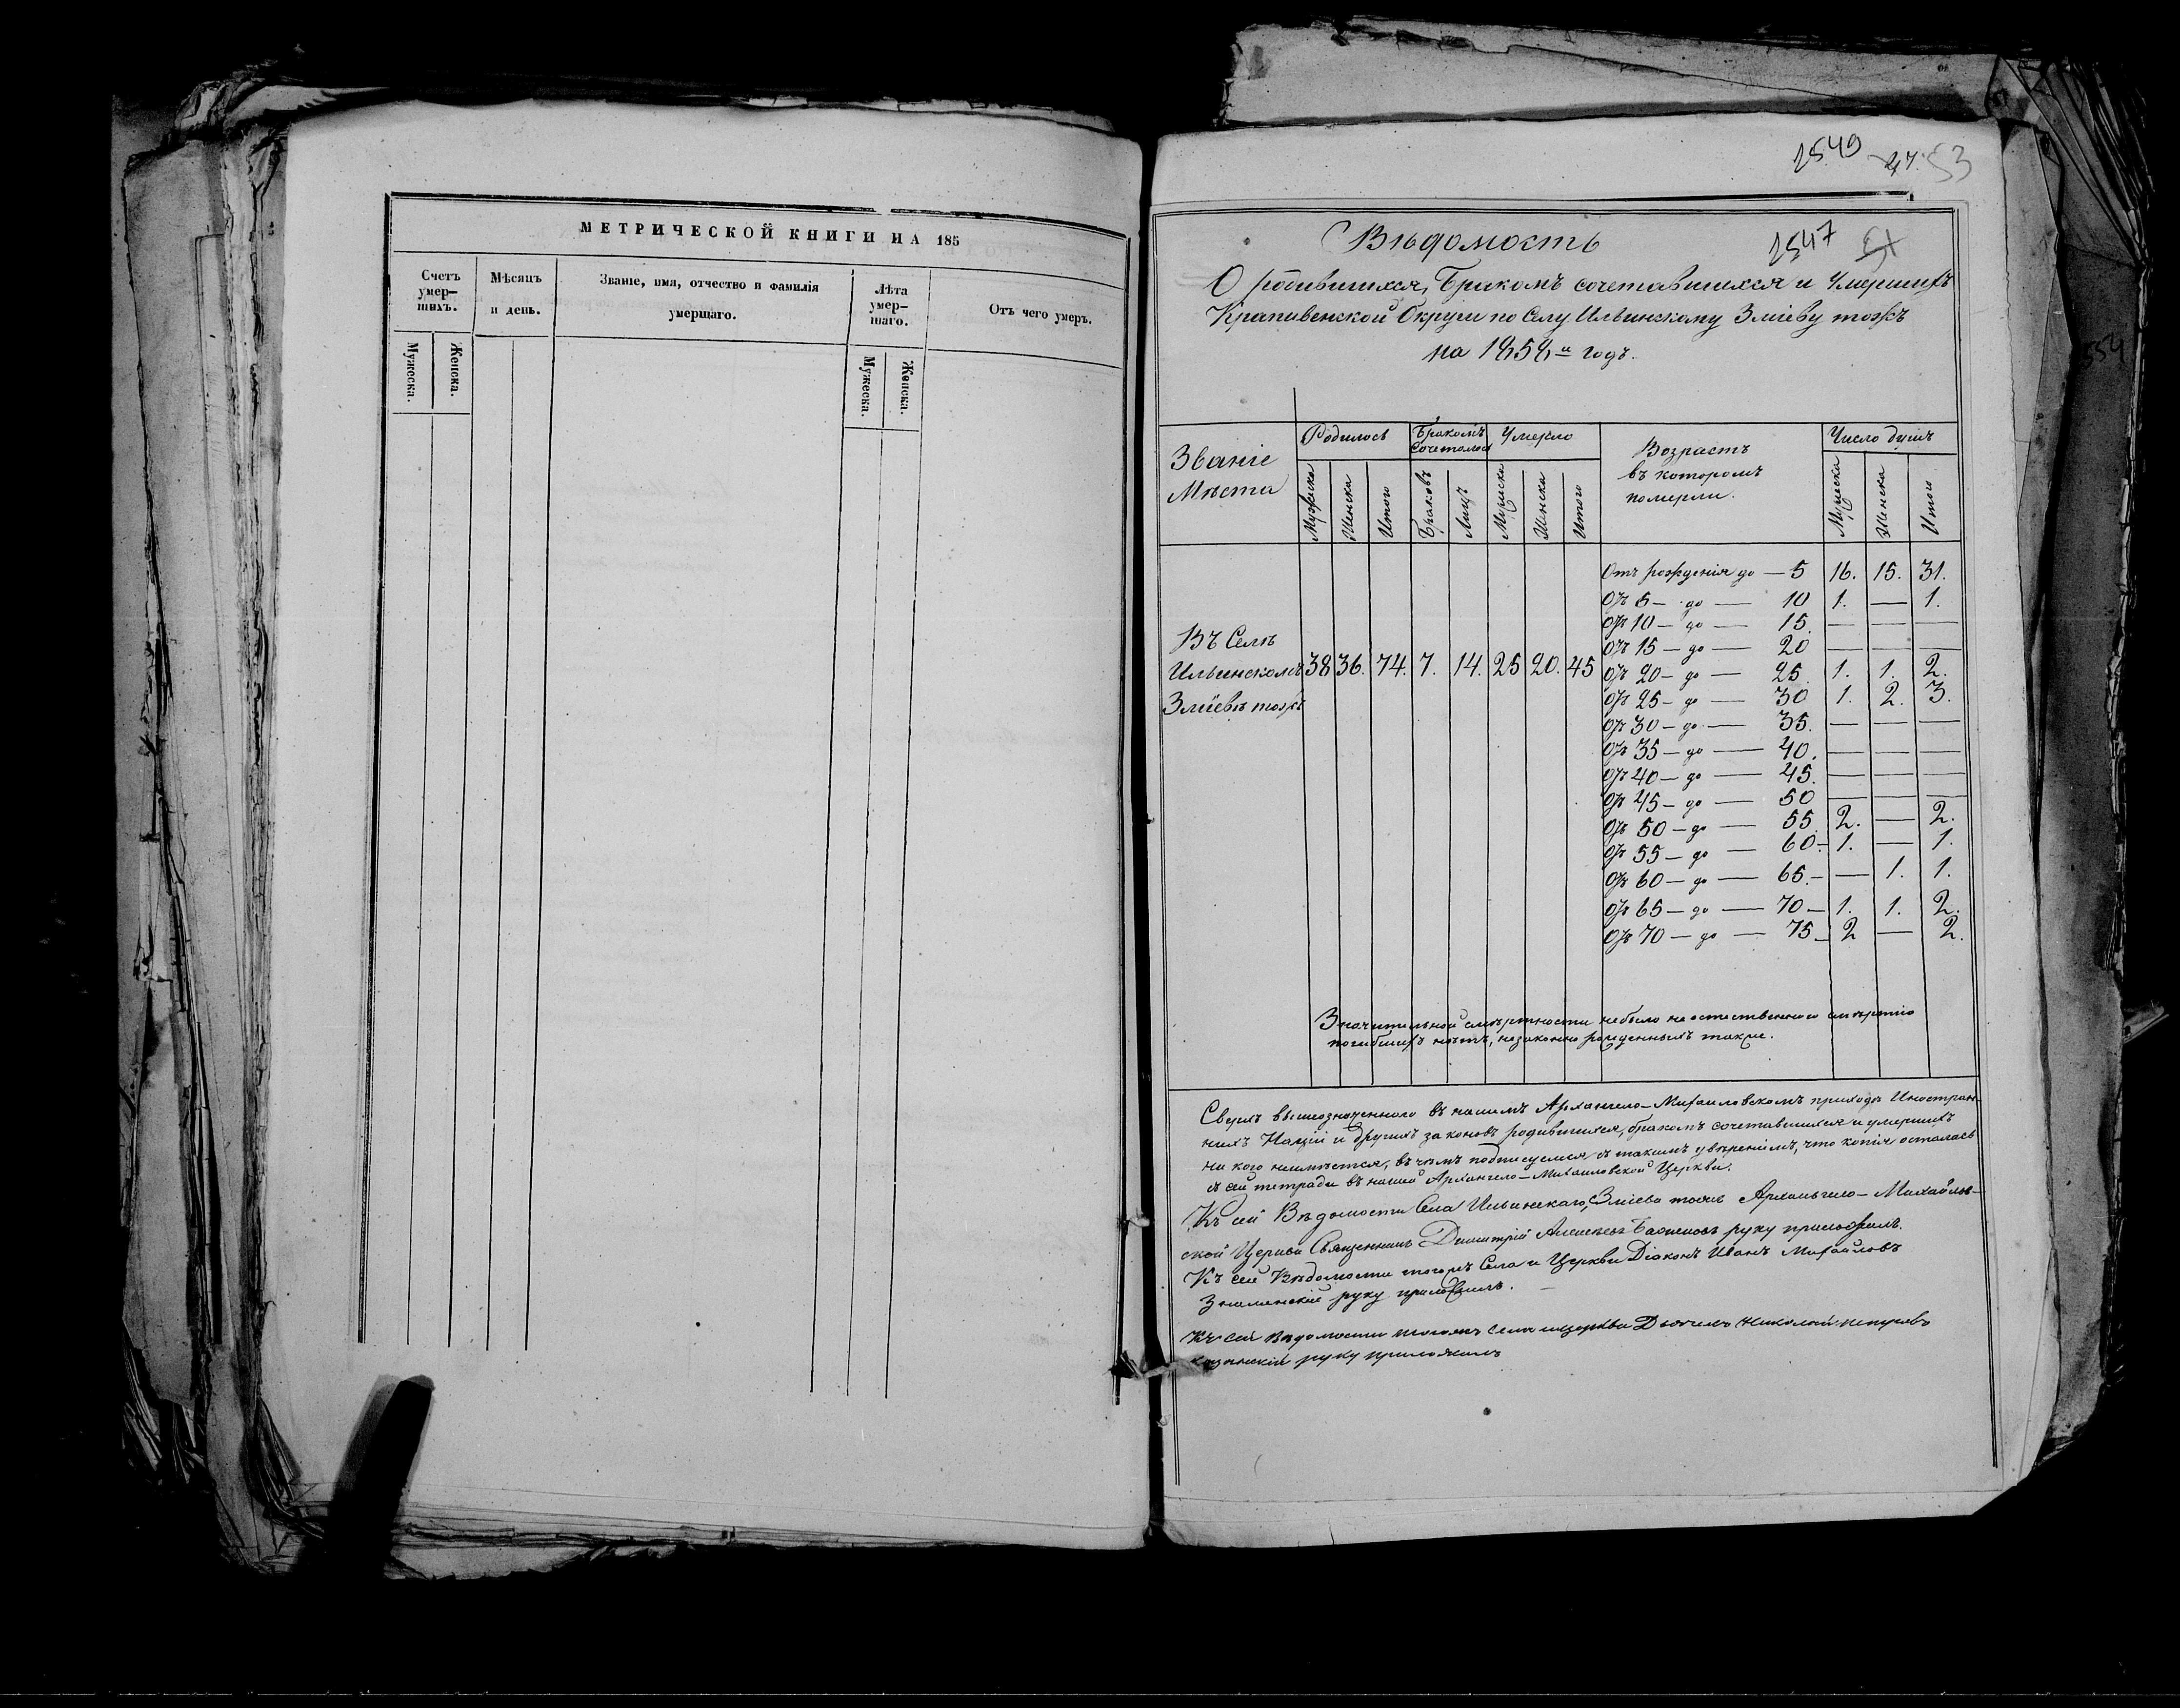 МЕТРИЧЕСКОЙ КНИГИ НА 185
Счетъ умер-шихъ.
Мѣсяцъ и день.
Званіе, имя, отчество и фамилія умершаго.
Лѣта умер-шаго.
Отъ чего умеръ.
Мужеска.
Женска.
Мужеска.
Женска.
2549
53
Вѣдомость
2547
О родившихся, Бракомъ сочетавшихся и Умершихъ
Крапивенской Округи по Селу Ильинскому Зміеву тожъ
на 1858й годъ.
Званіе Мѣста
Родилось
Бракомъ Сочеталось
Умерло
Возрастъ въ которомъ померли.
Число душъ
Мужеска Женска Итого Браковъ Лицъ Мужеска Женска Итого Мужеска Женска Итого
Отъ рожденія до — 5 16. 15. 31.
Отъ 5 — до — 10 1. — 1.
Отъ 10 — до — 15. — — —
Отъ 15 — до — 20 — — —
Въ Селѣ Ильинскомъ Зміевѣ тожъ 38 36. 74. 7. 14. 25 20. 45
Отъ 20 — до — 25. 1. 1. 2.
Отъ 25 — до — 30 1. 2. 3.
Отъ 30 — до — 35. — — —
Отъ 35 — до — 40. — — —
Отъ 40 — до — 45. — — —
Отъ 45 — до — 50 — — —
Отъ 50 — до — 55 2. — 2.
Отъ 55 — до — 60 — 1. — 1.
Отъ 60 — до — 65. — — 1. 1.
Отъ 65 — до — 70 — 1. 1. 2.
Отъ 70 — до — 75 — 2 — 2.
Значительной смертности небыло неестественною смертію
погибшихъ нѣтъ, незаконно рожденныхъ также.
Сверхъ вышеозначеннаго въ нашемъ Архангело-Михаиловскомъ приходѣ Иностран-
ныхъ Націй и другихъ законовъ родившихся, бракомъ сочетавшихся и умершихъ
ни кого неимѣется, въ чемъ подписуемся съ такимъ увѣреніемъ, что копія осталась
съ сей тетради въ нашей Архангело-Михаиловской Церкви.
Къ сей Вѣдомости Села Ильинскаго, Зміева тожъ Архангело-Михайлов-
ской Церкви Священникъ Димитрій Алексѣевъ руку приложилъ.
Къ сей Вѣдомости тогожъ Села и Церкви Діаконъ Иванъ Михайловъ
Знаменскій руку приложилъ.
Къ сей вѣдомости тогожъ села и церкви Дьячекъ Николай Петровъ
казанскій руку приложилъ